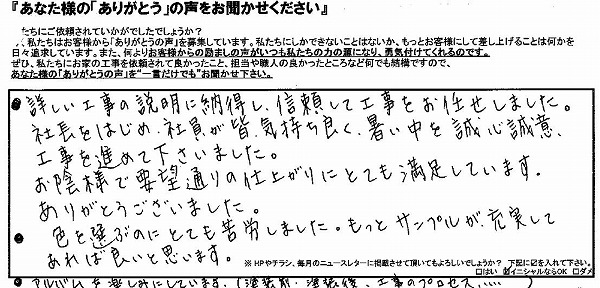 『あなた様の「ありがとう」の声をお聞かせください』
たちにご依頼されていかがでしたでしょうか？
、私たちはお客様から「ありがとうの声」を募集しています。私たちにしかできないことはないか、もっとお客様にして差し上げることは何かを
日々追求しています。また、何よりお客様からの励ましの声がいつも私たちの力の源になり、勇気付けてくれるのです。
ぜひ、私たちにお家の工事を依頼されて良かったこと、担当や職人の良かったところなど何でも結構ですので、
あなた様の「ありがとうの声」を"一言だけでも"お聞かせ下さい。
詳しい工事の説明に納得し、信頼して工事をお任せしました。
社長をはじめ、社員が皆、気持ち良く、暑い中を誠心誠意、
工事を進めて下さいました。
お陰様で要望通りの仕上がりにとても満足しています。
ありがとうございました。
色を選ぶのにとても苦労しました。もっとサンプルが、充実して
あれば良いと思います。
※HPやチラシ、毎月のニュースレターに掲載させて頂いてもよろしいでしょうか？ 下記に☑を入れて下さい。
□はい ☑イニシャルならOK □ダメ
アルバムを楽しみにしています（塗装前・塗装後、工事のプロセス……）